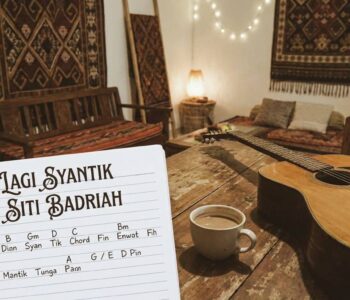 Lagi Syantik
Siti Badriah
B Gm D C Bm
Dinn Syan Tik Chord Fin Enwot Fih
A G / E D Pin
Mantik Tunga Pann